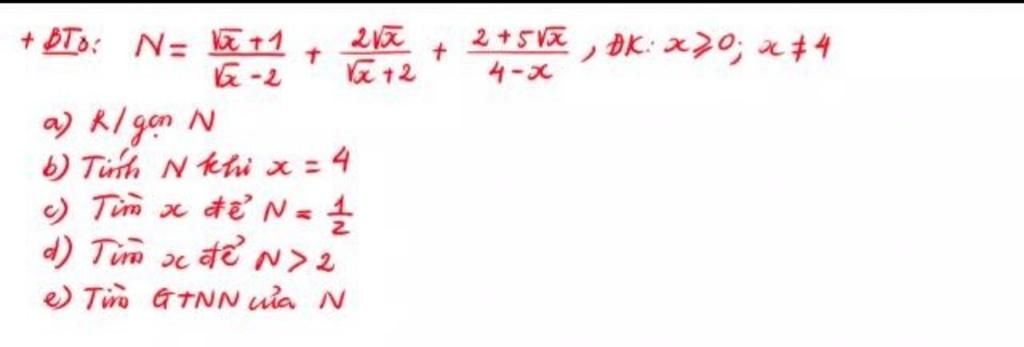 + BT3: N = (√x + 1)/(√x - 2) + (2√x)/(√x + 2) + (2 + 5√x)/(4 - x), ĐK: x ⩾ 0; x ≠ 4
a) R/gọn N
b) Tính N khi x = 4
c) Tìm x để N = 1/2
d) Tìm x để N > 2
e) Tìm GTNN của N